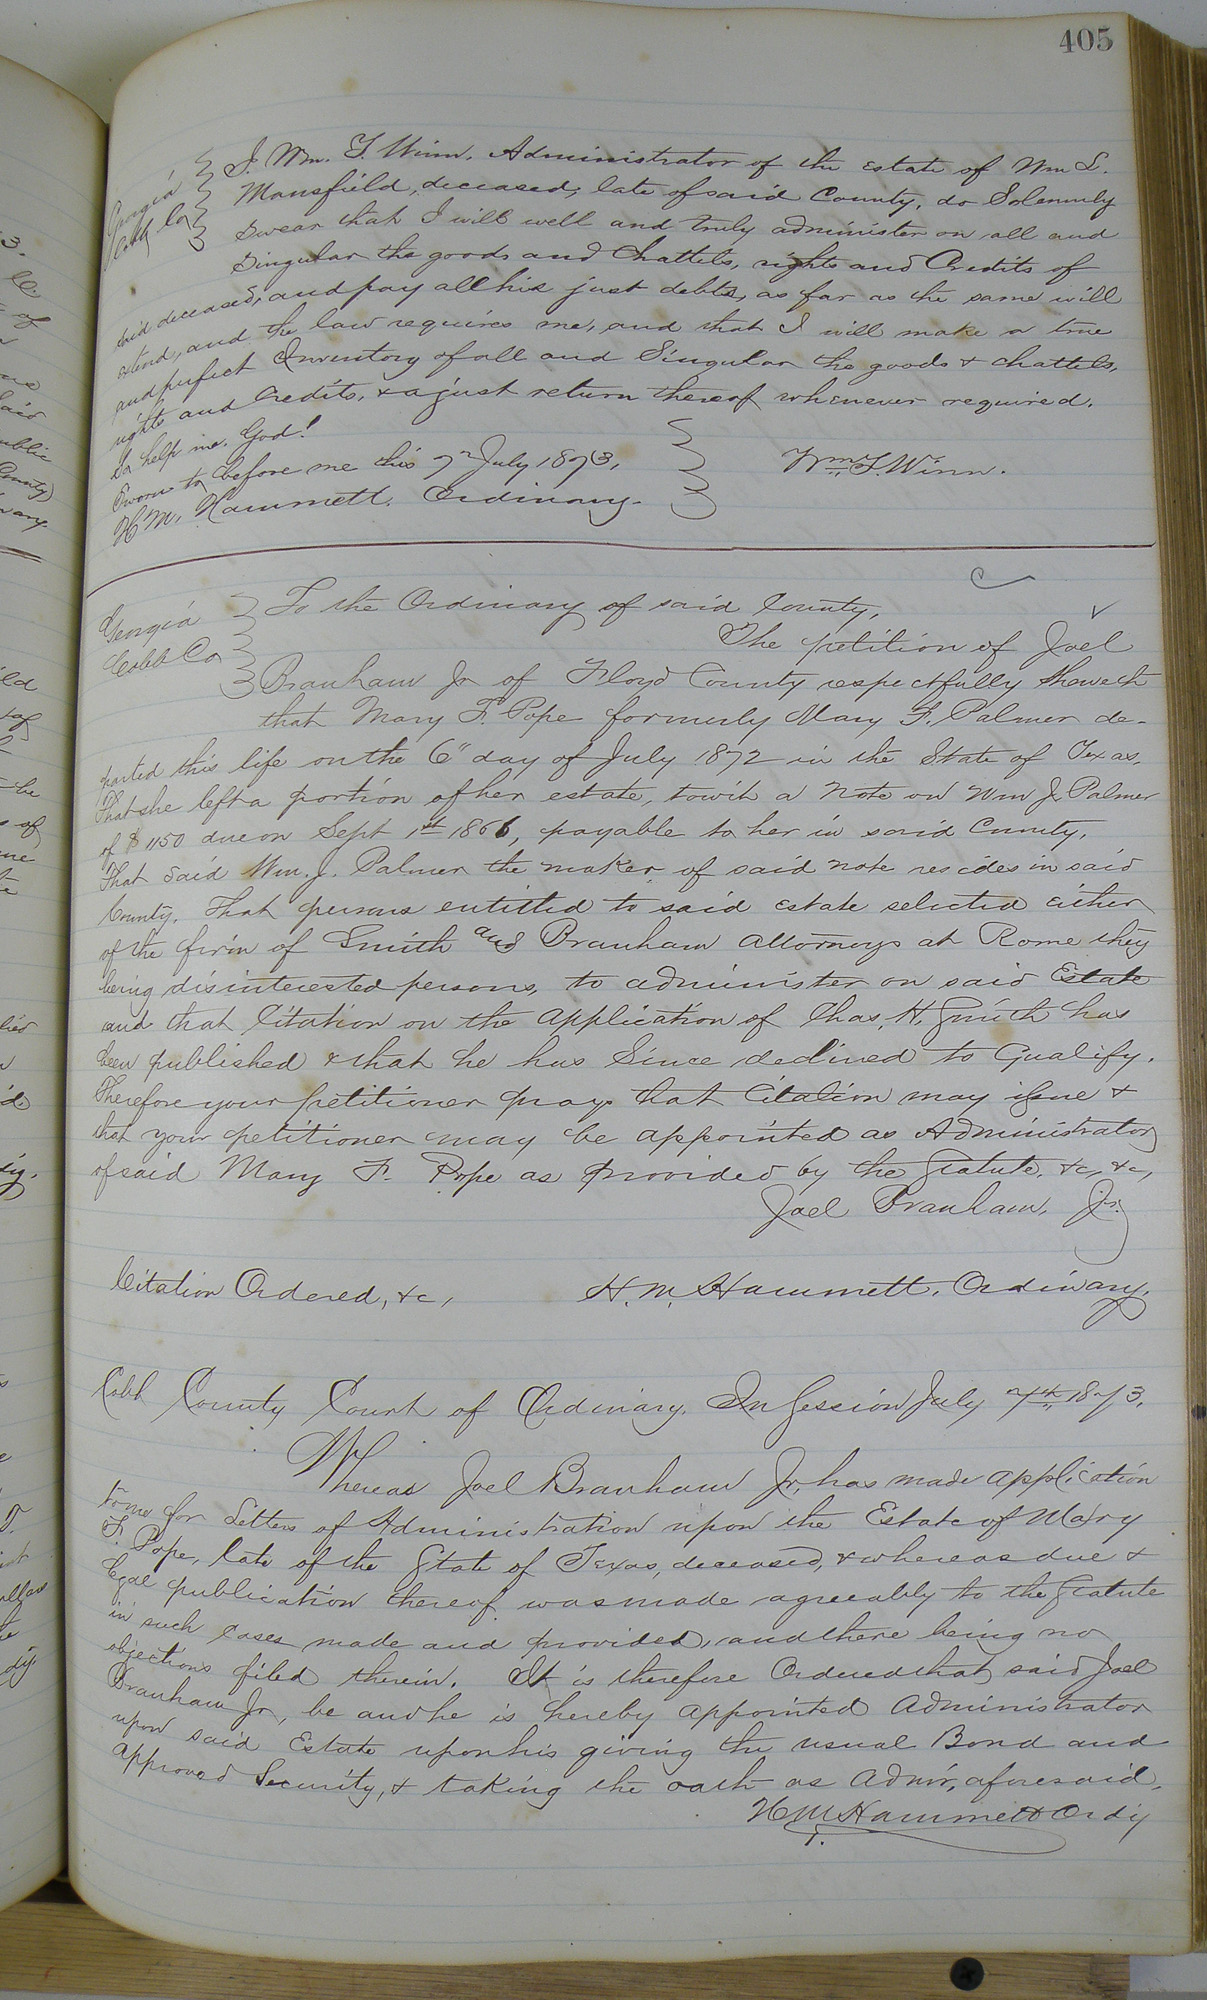 405
Georgia
Cobb Co
I, Wm. T. Winn, Administrator of the estate of Wm L.
Mansfield, deceased, late of said County, do Solemnly
Swear that I will well and truly administer on all and
Singular the goods and Chattels, rights and Credits of
said deceased, and pay all his just debts, as far as the same will
extend, and the law requires me, and that I will make a true
and perfect Inventory of all and Singular the goods & chattels,
rights and Credits, & a just return thereof whenever required.
So help me. God!
Sworn to before me this 7th July 1873,
Wm. T. Winn.
H. M. Hammett. Ordinary.
Georgia
Cobb Co
To the Ordinary of said County,
The petition of Joel
Branham Jr of Floyd County respectfully Sheweth
that Mary F. Pope formerly Mary F. Palmer de-
parted this life on the 6" day of July 1872 in the State of Texas,
That she left a portion of her estate, towit a Note on Wm J. Palmer
of $1150 due on Sept 1st 1866, payable to her in said County.
That Said Wm. J. Palmer the maker of said note resides in said
County. That persons entitled to said estate selected either
of the firm of Smith and Branham Attorneys at Rome they
being disinterested persons, to administer on said Estate
and that Citation on the Application of Chas. H. Smith has
been published & that he has Since declined to Qualify.
Therefore your petitioner prays that Citation may issue &
that your petitioner may be appointed as Administrator
of said Mary F. Pope as provided by the Statute, &c, &c,
Joel Branham, Jr.
Citation Ordered, &c,
H. M. Hammett. Ordinary.
Cobb County Court of Ordinary. In Session July 7th 1873.
Whereas Joel Branham Jr, has made application
to me for Letters of Administration upon the Estate of Mary
F. Pope, late of the State of Texas, deceased, & whereas due &
legal publication thereof was made agreeably to the Statute
in such cases made and provided, and there being no
objections filed therein. It is therefore Ordered that said Joel
Branham Jr, be and he is hereby appointed Administrator
upon said Estate upon his giving the usual Bond and
approved Security, & taking the oath as Admr, aforesaid.
H M Hammett Ordy